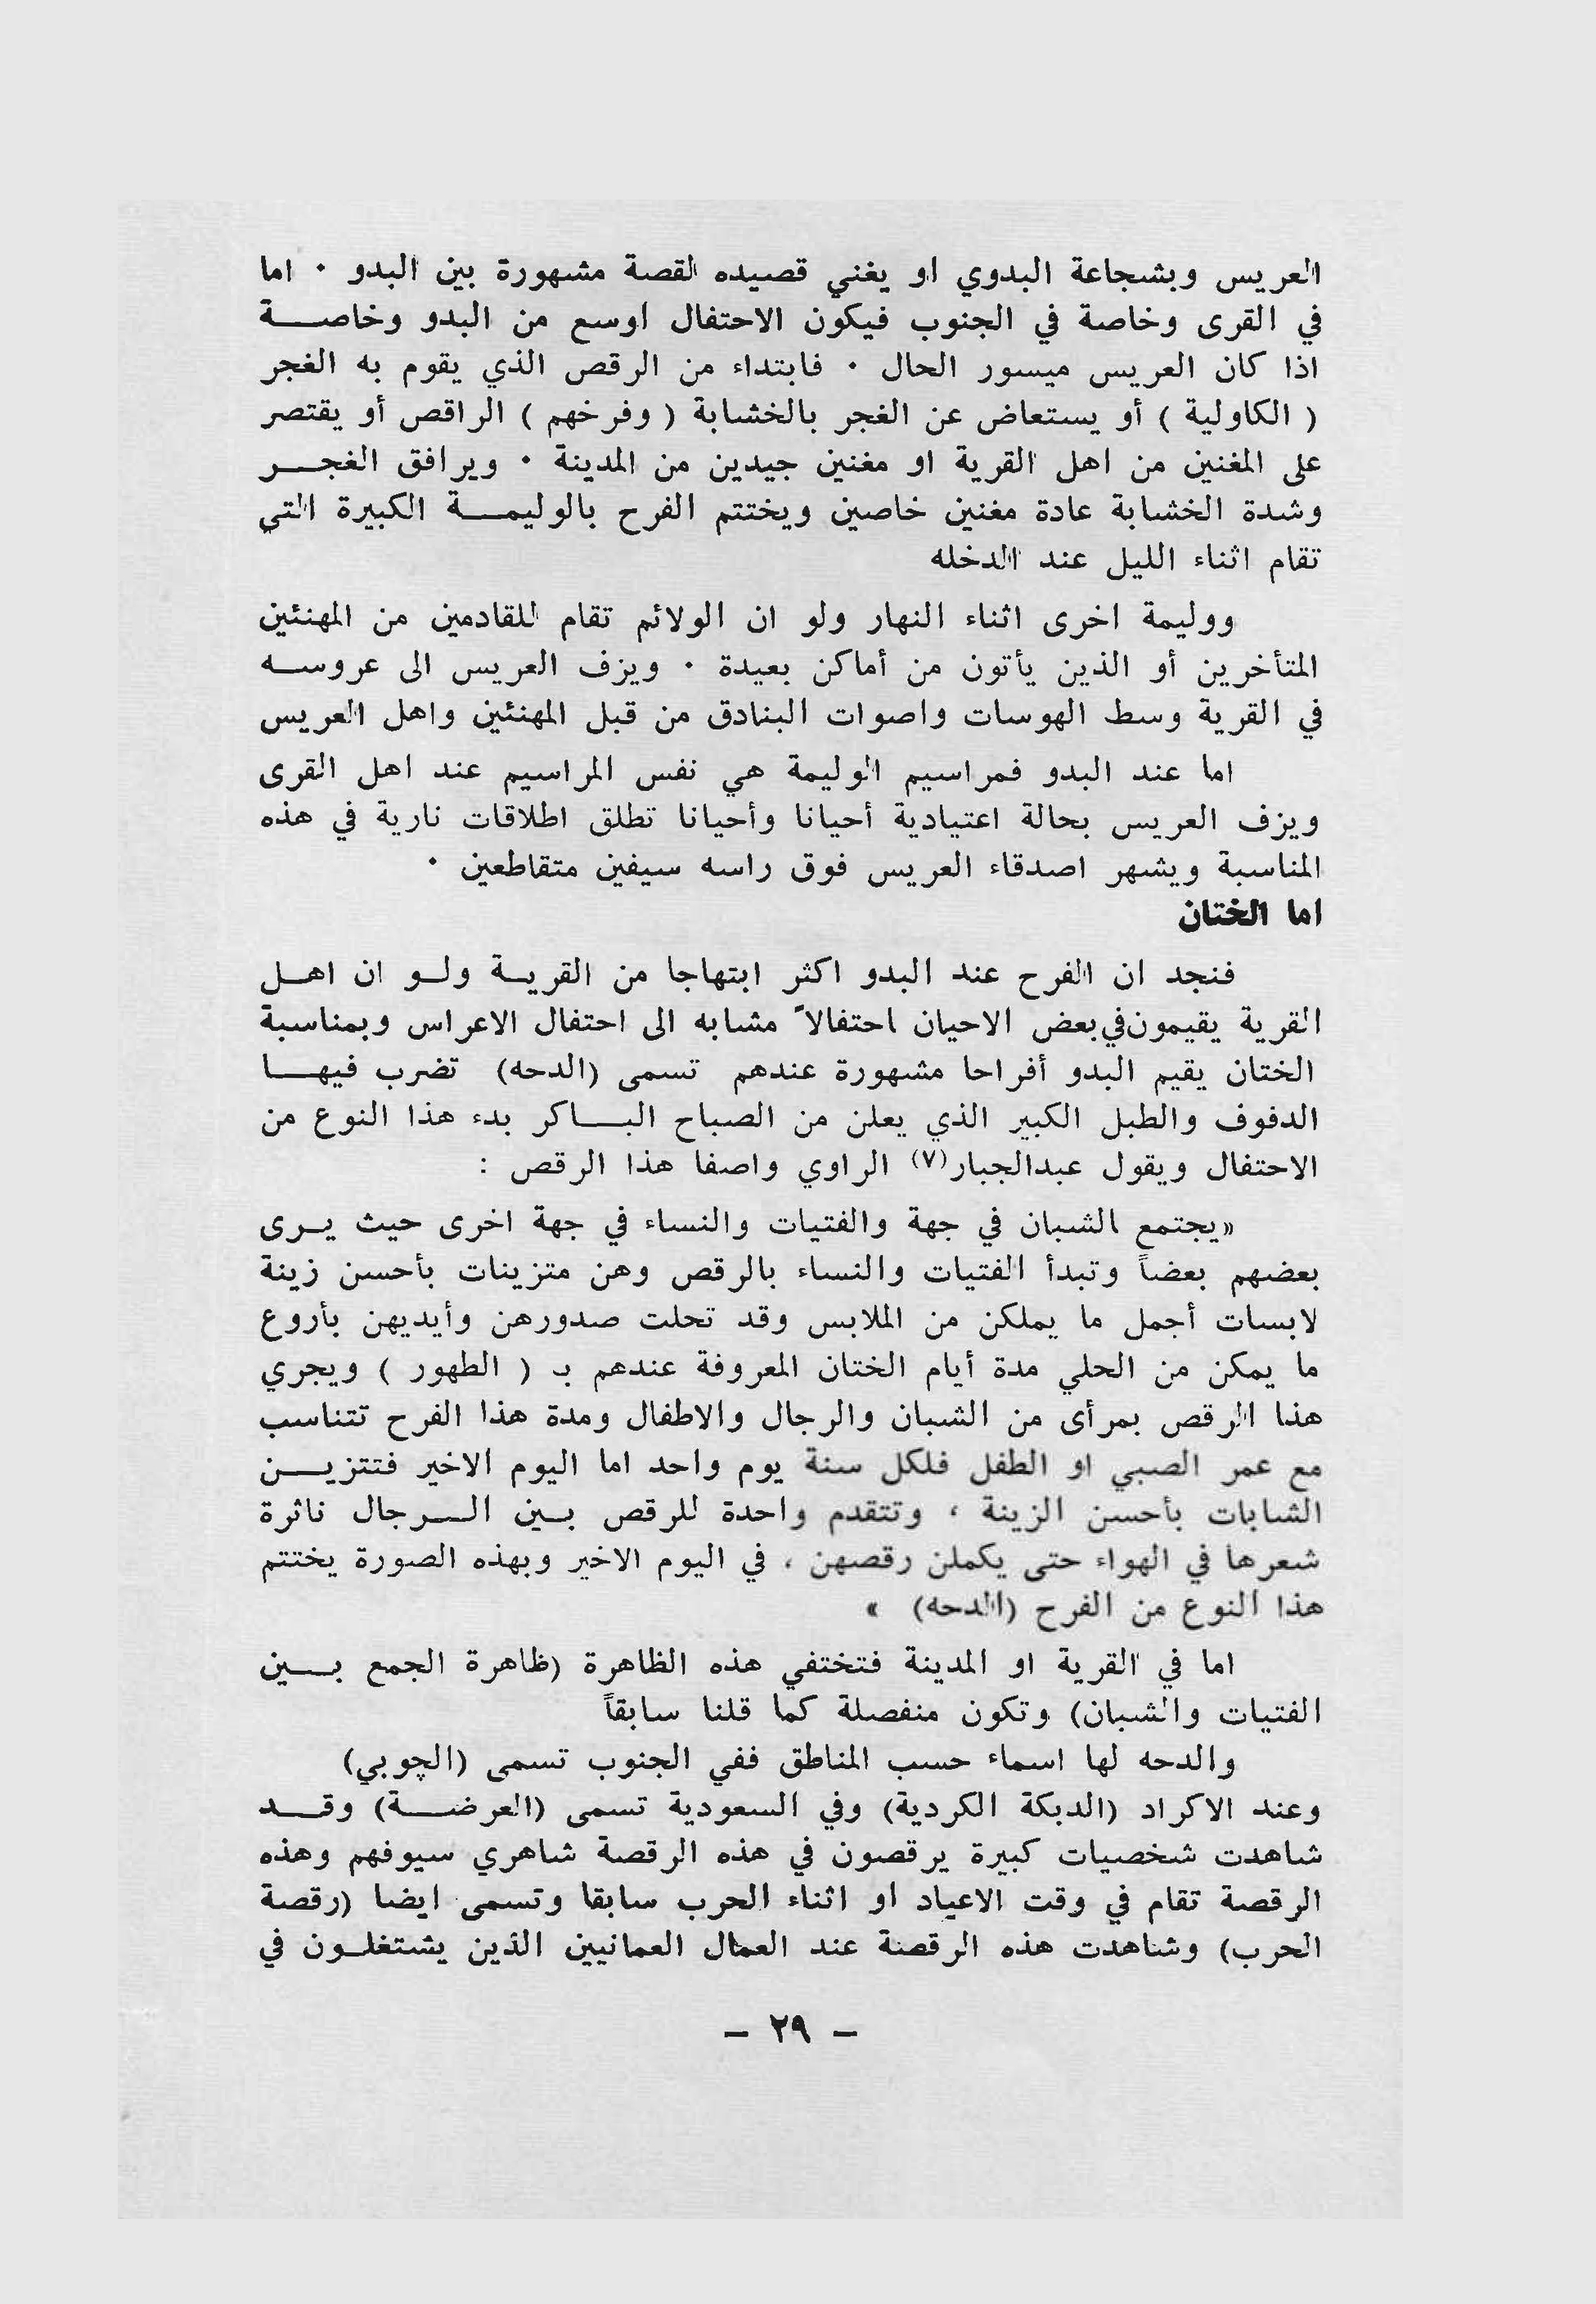 العريس وبشجاعة البدوي او يغني قصيده لقصة مشهورة بين البدو ٠ اما
في القرى وخاصة في الجنوب فيكون الاحتفال اوسع من البدو وخاصة
اذا كان العريس ميسور الحال ٠ فابتداء من الرقص الذي يقوم به الغجر
( الكاولية ) أو يستعاض عن الغجر بالخشابة ( وفرخهم ) الراقص أو يقتصر
على المغنين من اهل القرية او مغنين جيدين من المدينة ٠ ويرافق الغجر
وشدة الخشابة عادة مغنين خاصين ويختتم الفرح بالوليمة الكبيرة التي
تقام اثناء الليل عند الدخله
ووليمة اخرى اثناء النهار ولو ان الولائم تقام للقادمين من المهنئين
المتأخرين أو الذين يأتون من أماكن بعيدة ٠ ويزف العريس الى عروسه
في القرية وسط الهوسات واصوات البنادق من قبل المهنئين واهل العريس
اما عند البدو فمراسيم الوليمة هي نفس المراسيم عند اهل القرى
ويزف العريس بحالة اعتيادية أحيانا وأحيانا تطلق اطلاقات نارية في هذه
المناسبة ويشهر اصدقاء العريس فوق راسه سيفين متقاطعين ٠
اما الختان
فنجد ان الفرح عند البدو اكثر ابتهاجا من القرية ولو ان اهل
القرية يقيمون في بعض الاحيان احتفالاً مشابه الى احتفال الاعراس وبمناسبة
الختان يقيم البدو أفراحا مشهورة عندهم تسمى (الدحه) تضرب فيها
الدفوف والطبل الكبير الذي يعلن من الصباح الباكر بدء هذا النوع من
الاحتفال ويقول عبدالجبار(٧) الراوي واصفا هذا الرقص :
«يجتمع الشبان في جهة والفتيات والنساء في جهة اخرى حيث يرى
بعضهم بعضاً وتبدأ الفتيات والنساء بالرقص وهن متزينات بأحسن زينة
لابسات أجمل ما يملكن من الملابس وقد تحلت صدورهن وأيديهن بأروع
ما يمكن من الحلي مدة أيام الختان المعروفة عندهم بـ ( الطهور ) ويجري
هذا الرقص بمرأى من الشبان والرجال والاطفال ومدة هذا الفرح تتناسب
مع عمر الصبي او الطفل فلكل سنة يوم واحد اما اليوم الاخير فتتزين
الشابات بأحسن الزينة ، وتتقدم واحدة للرقص بين الرجال ناثرة
شعرها في الهواء حتى يكملن رقصهن ، في اليوم الاخير وبهذه الصورة يختتم
هذا النوع من الفرح (الدحه) »
اما في القرية او المدينة فتختفي هذه الظاهرة (ظاهرة الجمع بين
الفتيات والشبان) وتكون منفصلة كما قلنا سابقاً
والدحه لها اسماء حسب المناطق ففي الجنوب تسمى (الچوبي)
وعند الاكراد (الدبكة الكردية) وفي السعودية تسمى (العرضة) وقد
شاهدت شخصيات كبيرة يرقصون في هذه الرقصة شاهري سيوفهم وهذه
الرقصة تقام في وقت الاعياد او اثناء الحرب سابقا وتسمى ايضا (رقصة
الحرب) وشاهدت هذه الرقصة عند العمال العمانيين الذين يشتغلون في
– ٢٩ –